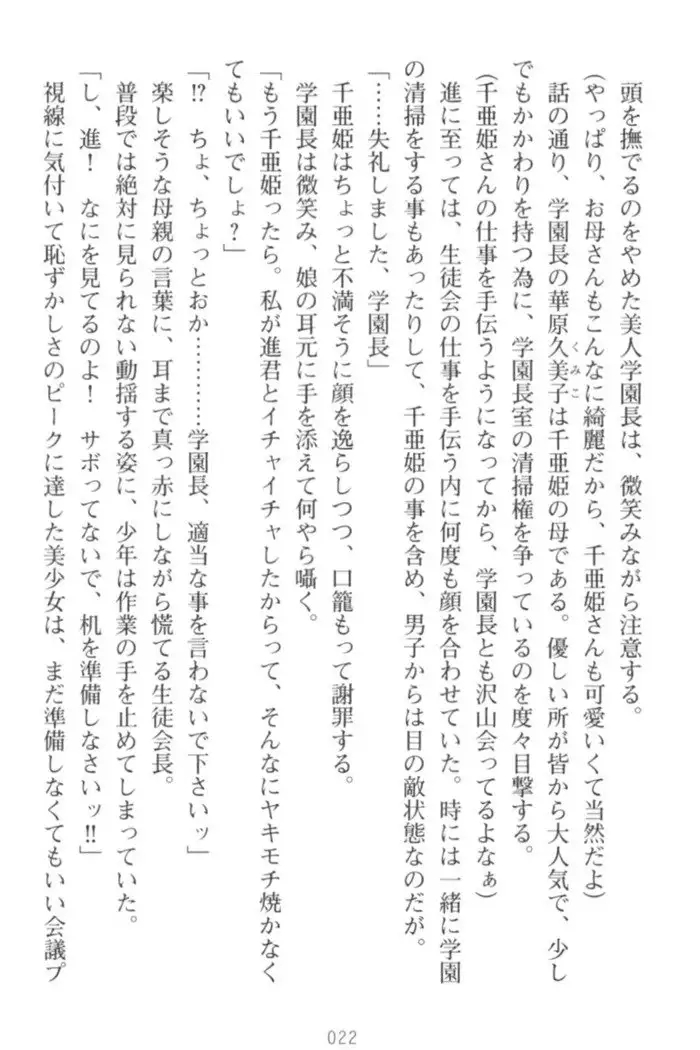 頭を撫でるのをやめた美人学園長は、微笑みながら注意する。
(やっぱり、お母さんもこんなに綺麗だから、千亜姫さんも可愛いくて当然だよ)
話の通り、学園長の華原久美子は千亜姫の母である。優しい所が皆から大人気で、少し
くみこ
でもかかわりを持つ為に、学園長室の清掃権を争っているのを度々目撃する。
(千亜姫さんの仕事を手伝うようになってから、学園長とも沢山会ってるよなぁ)
進に至っては、生徒会の仕事を手伝う内に何度も顔を合わせていた。時には一緒に学園
の清掃をする事もあったりして、千亜姫の事を含め、男子からは目の敵状態なのだが。
「……失礼しました、学園長」
千亜姫はちょっと不満そうに顔を逸らしつつ、口籠もって謝罪する。
学園長は微笑み、娘の耳元に手を添えて何やら囁く。
「もう千亜姫ったら。私が進君とイチャイチャしたからって、そんなにヤキモチ焼かなく
てもいいでしょ?」
「!? ちょ、ちょっとおか…………学園長、適当な事を言わないで下さいッ」
楽しそうな母親の言葉に、耳まで真っ赤にしながら慌てる生徒会長。
普段では絶対に見られない動揺する姿に、少年は作業の手を止めてしまっていた。
「し、進! なにを見てるのよ! サボってないで、机を準備しなさいッ!!」
視線に気付いて恥ずかしさのピークに達した美少女は、まだ準備しなくてもいい会議プ
022